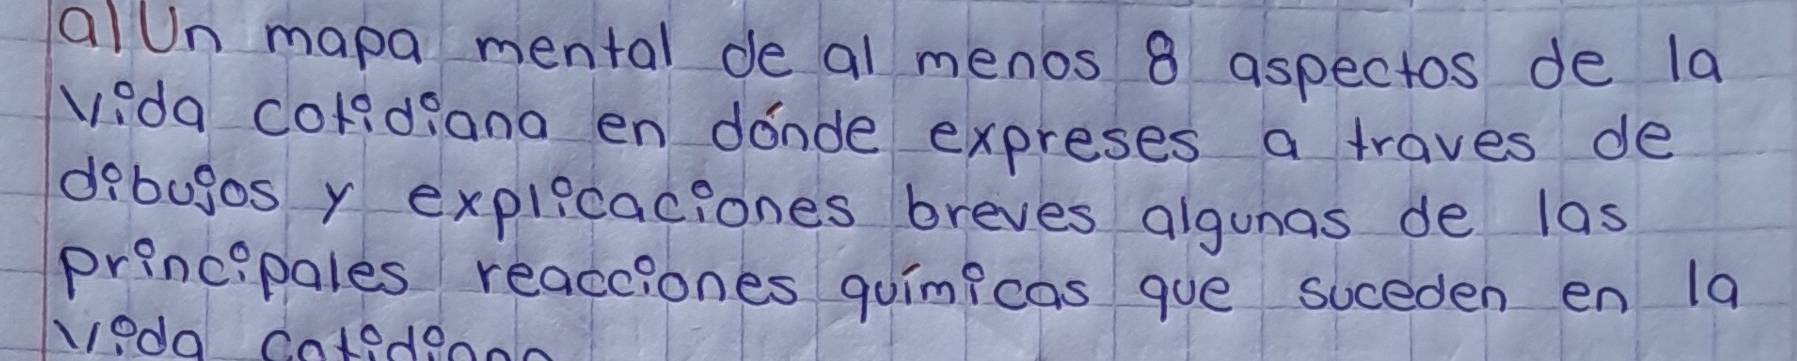 a) Un mapa mental de al menos 8 aspectos de la
vida cotidiana en dónde expreses a traves de
dibujos y explicaciones breves algunas de las
principales reacciones químicas que suceden en la
vida cotidiana